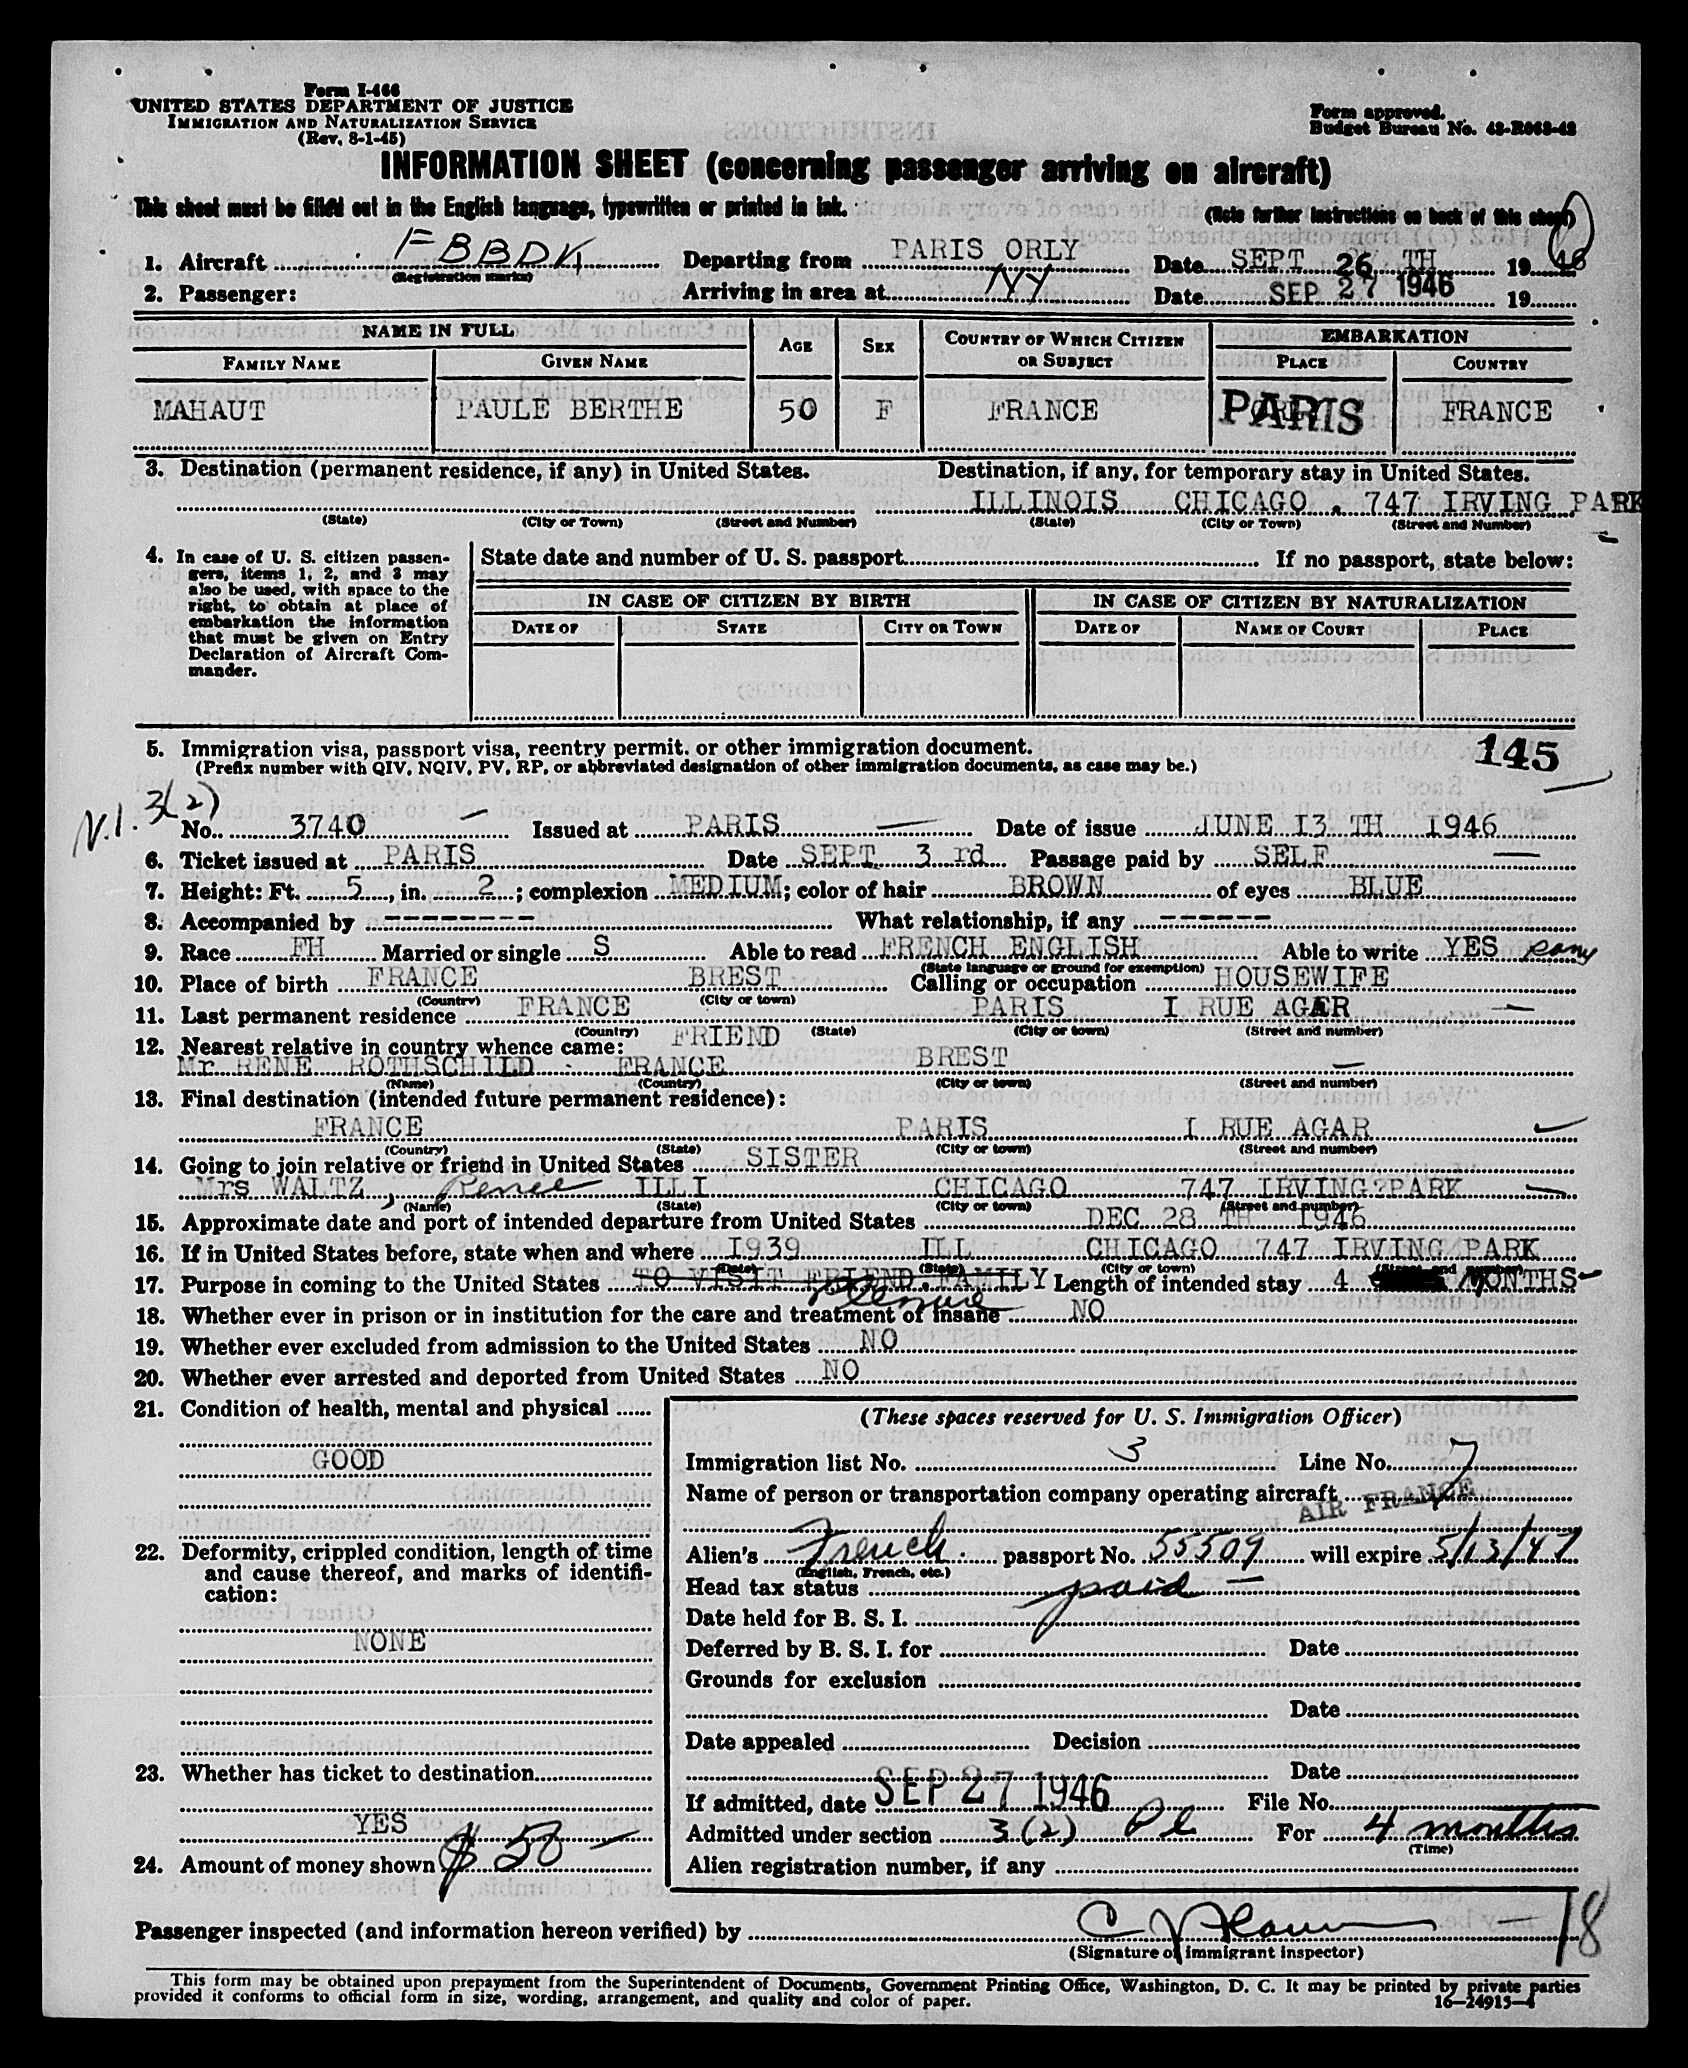 Form I-466
UNITED STATES DEPARTMENT OF JUSTICE
IMMIGRATION AND NATURALIZATION SERVICE
(Rev. 8-1-45)
Form approved.
Budget Bureau No. 43-R063-42
INFORMATION SHEET (concerning passenger arriving on aircraft)
This sheet must be filled out in the English language, typewritten or printed in ink. (Note further instructions on back of this sheet)
1. Aircraft F BBDK Departing from PARIS ORLY Date SEPT 26 TH 19 46
(Registration marks)
2. Passenger: Arriving in area at NY Date SEP 27 1946 19
NAME IN FULL AGE SEX COUNTRY OF WHICH CITIZEN OR SUBJECT EMBARKATION
FAMILY NAME GIVEN NAME PLACE COUNTRY
MAHAUT PAULE BERTHE 50 F FRANCE PARIS FRANCE
3. Destination (permanent residence, if any) in United States. Destination, if any, for temporary stay in United States.
ILLINOIS CHICAGO . 747 IRVING PARK
(State) (City or Town) (Street and Number) (State) (City or Town) (Street and Number)
4. In case of U. S. citizen passengers, items 1, 2, and 3 may also be used, with space to the right, to obtain at place of embarkation the information that must be given on Entry Declaration of Aircraft Commander.
State date and number of U. S. passport If no passport, state below:
IN CASE OF CITIZEN BY BIRTH IN CASE OF CITIZEN BY NATURALIZATION
DATE OF STATE CITY OR TOWN DATE OF NAME OF COURT PLACE
5. Immigration visa, passport visa, reentry permit, or other immigration document. 145
(Prefix number with QIV, NQIV, PV, RP, or abbreviated designation of other immigration documents, as case may be.)
V.1. 3(2)
No. 3740 Issued at PARIS Date of issue JUNE I3 TH 1946
6. Ticket issued at PARIS Date SEPT 3 rd Passage paid by SELF
7. Height: Ft. 5, in. 2; complexion MEDIUM; color of hair BROWN of eyes BLUE
8. Accompanied by -------- What relationship, if any ------
9. Race FH Married or single S Able to read FRENCH ENGLISH Able to write YES same
(State language or ground for exemption)
10. Place of birth FRANCE BREST Calling or occupation HOUSEWIFE
(Country) (City or town)
11. Last permanent residence FRANCE PARIS I RUE AGAR
(Country) (State) (City or town) (Street and number)
12. Nearest relative in country whence came: FRIEND
Mr RENE ROTHSCHILD FRANCE BREST
(Name) (Country) (City or town) (Street and number)
13. Final destination (intended future permanent residence):
FRANCE PARIS I RUE AGAR
(Country) (State) (City or town) (Street and number)
14. Going to join relative or friend in United States SISTER
Mrs WALTZ, Renee ILLI CHICAGO 747 IRVING?PARK
(Name) (State) (City or town) (Street and number)
15. Approximate date and port of intended departure from United States DEC 28 TH 1946
16. If in United States before, state when and where I939 ILL CHICAGO 747 IRVING PARK
(Date) (State) (City or town) (Street and number)
17. Purpose in coming to the United States TO VISIT FRIEND.FAMILY Length of intended stay 4 MONTHS
pleasure
18. Whether ever in prison or in institution for the care and treatment of insane NO
19. Whether ever excluded from admission to the United States NO
20. Whether ever arrested and deported from United States NO
21. Condition of health, mental and physical
GOOD
22. Deformity, crippled condition, length of time and cause thereof, and marks of identification:
NONE
23. Whether has ticket to destination
YES
24. Amount of money shown $ 50
(These spaces reserved for U. S. Immigration Officer)
Immigration list No. 3 Line No. 7
Name of person or transportation company operating aircraft AIR FRANCE
Alien's French passport No. 55509 will expire 5/13/47
(English, French, etc.)
Head tax status paid
Date held for B. S. I.
Deferred by B. S. I. for Date
Grounds for exclusion
Date
Date appealed Decision
Date
If admitted, date SEP 27 1946 File No.
Admitted under section 3(2) Pl For 4 months
(Time)
Alien registration number, if any
Passenger inspected (and information hereon verified) by 18
(Signature of immigrant inspector)
This form may be obtained upon prepayment from the Superintendent of Documents, Government Printing Office, Washington, D. C. It may be printed by private parties
provided it conforms to official form in size, wording, arrangement, and quality and color of paper. 16—24915-4